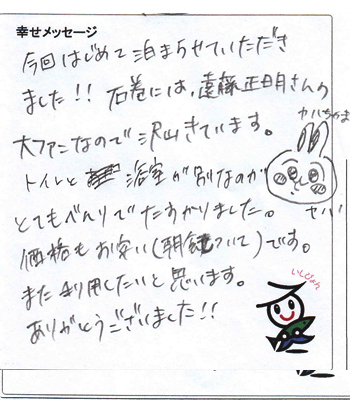 幸せメッセージ
今回はじめて泊まらせていただき
ました!! 石巻には、遠藤正明さんの
大ファンなので沢山きています。
トイレと 浴室が別なのが
とてもべんりでたすかりました。
価格もお安い(朝食ついて)です。
また利用したいと思います。
ありがとうございました!!
ヤバ
いしぴょん